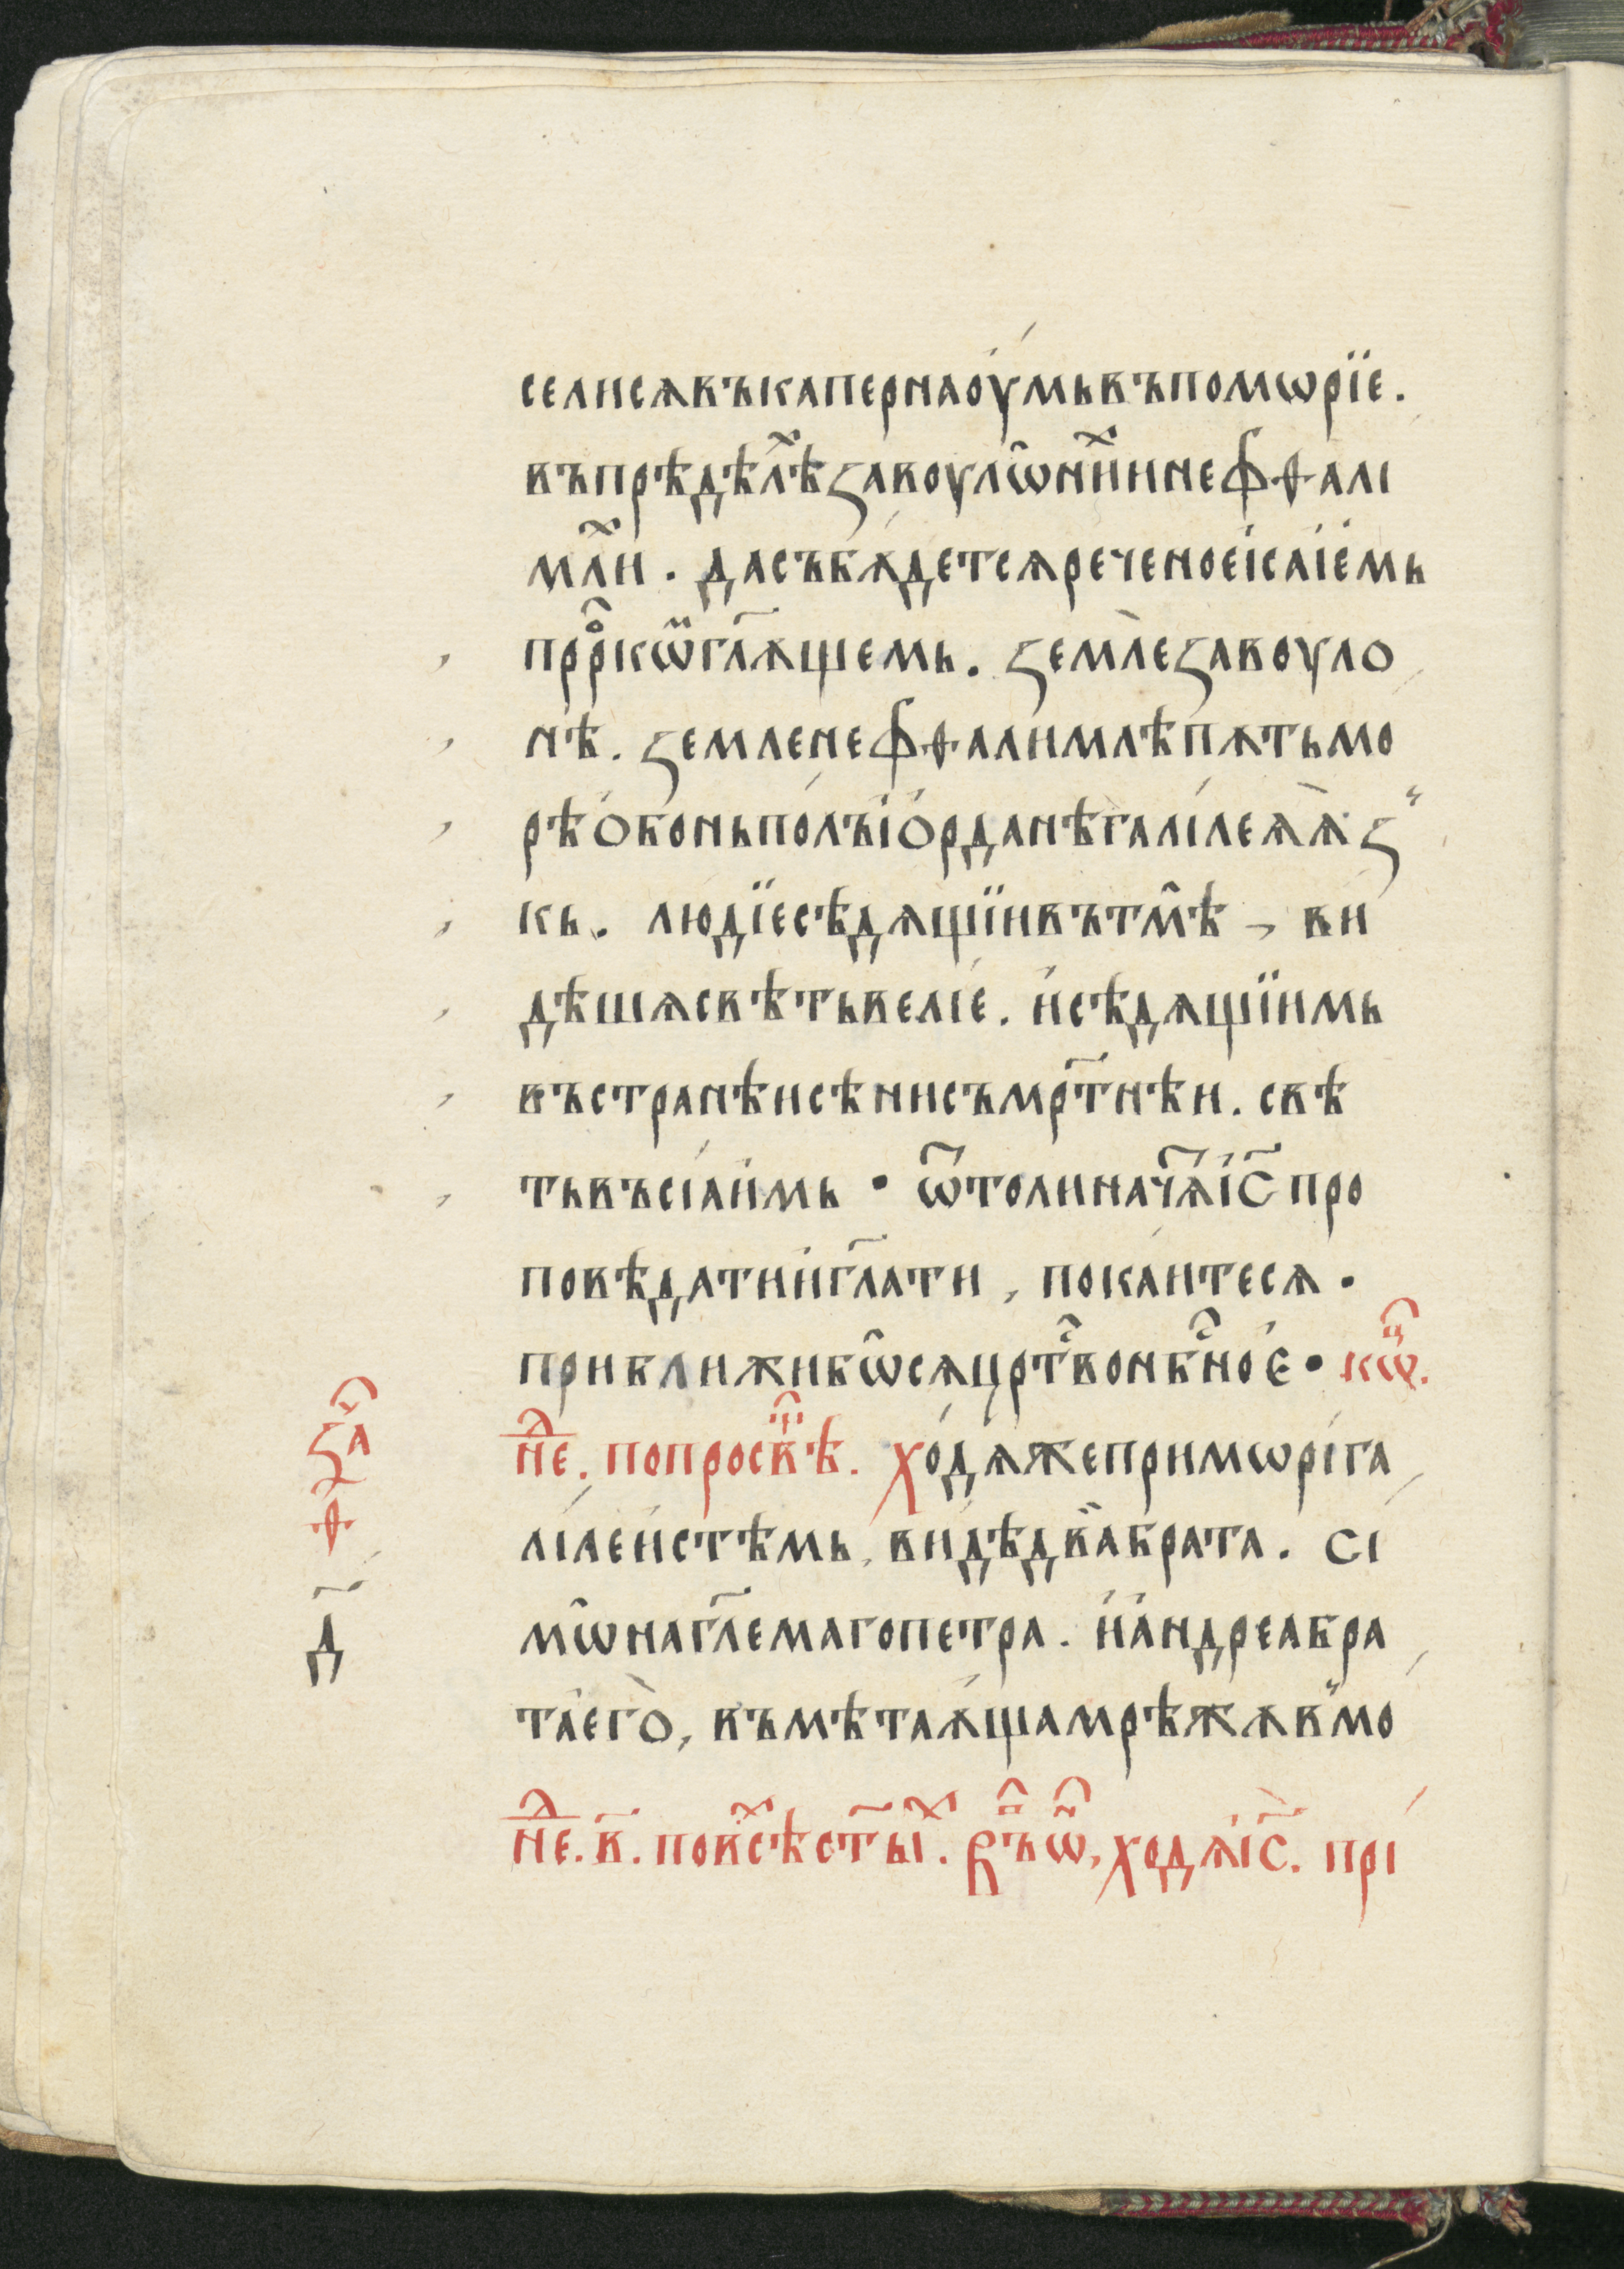 селисѧвъкапернаоу́мьвъпомѡрїе.
въпрѣдѣл҄ѣꙁавоулѡ̑нн҄инефѳалі
мл҄и . дасъбѫ́детсѧреченоеісаіемь
прⷪ҇ркѡⷨгл҃ѧщемь. ꙁемл̀еꙁавоуло
нѣ. ꙁемленефѳалимлѣпѫтьмо
рѣо́боньпо́лъіо́рданѣгалі́леѧѧ̀ꙁ̋
кь. людїесѣдѧщїивътм̑ѣ , ви
дѣшѧсвѣтьвелі́е. и҆сѣдѧщїимь
въстранѣисѣнисъмр҃тнѣи. свѣ
тьвъсіаи́мь · ѿтолинач҃ѧі҆с҃про
повѣдатии҆гл҃ати , покаи́тесѧ ·
приближибѡ̑сѧцрⷭ҇твонбⷭ҇ное́ · кѡⷰ҇.
нⷣ҇е. попросв҃ѣ. хо́дѧжепримѡрі́га
лі́леи́стѣмь, ви́дѣдва̏брата. сі
мѡ̑нагл҃емагопетра. и҆а҆ндреабра
та̀его̀, въмѣтаѧ́щамрѣжѧв̏мо
нⷣ҇е.в҃. повсⷯ҇ѣст҃ыⷯ. ꙉъѡⷩ҇, ходѧі҆с҃. прі
ꙁаⷱ҇
ѳ
д҃